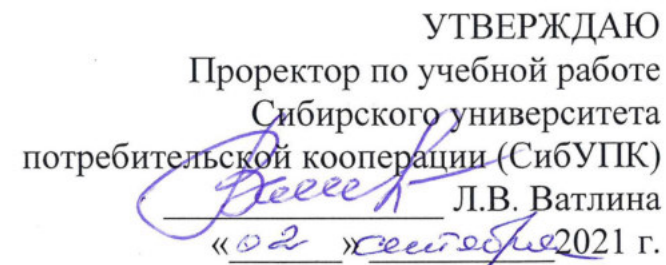 УТВЕРЖДАЮ
Проректор по учебной работе
Сибирского университета
потребительской кооперации (СибУПК)
Л.В. Ватлина
«02» сентября 2021 г.